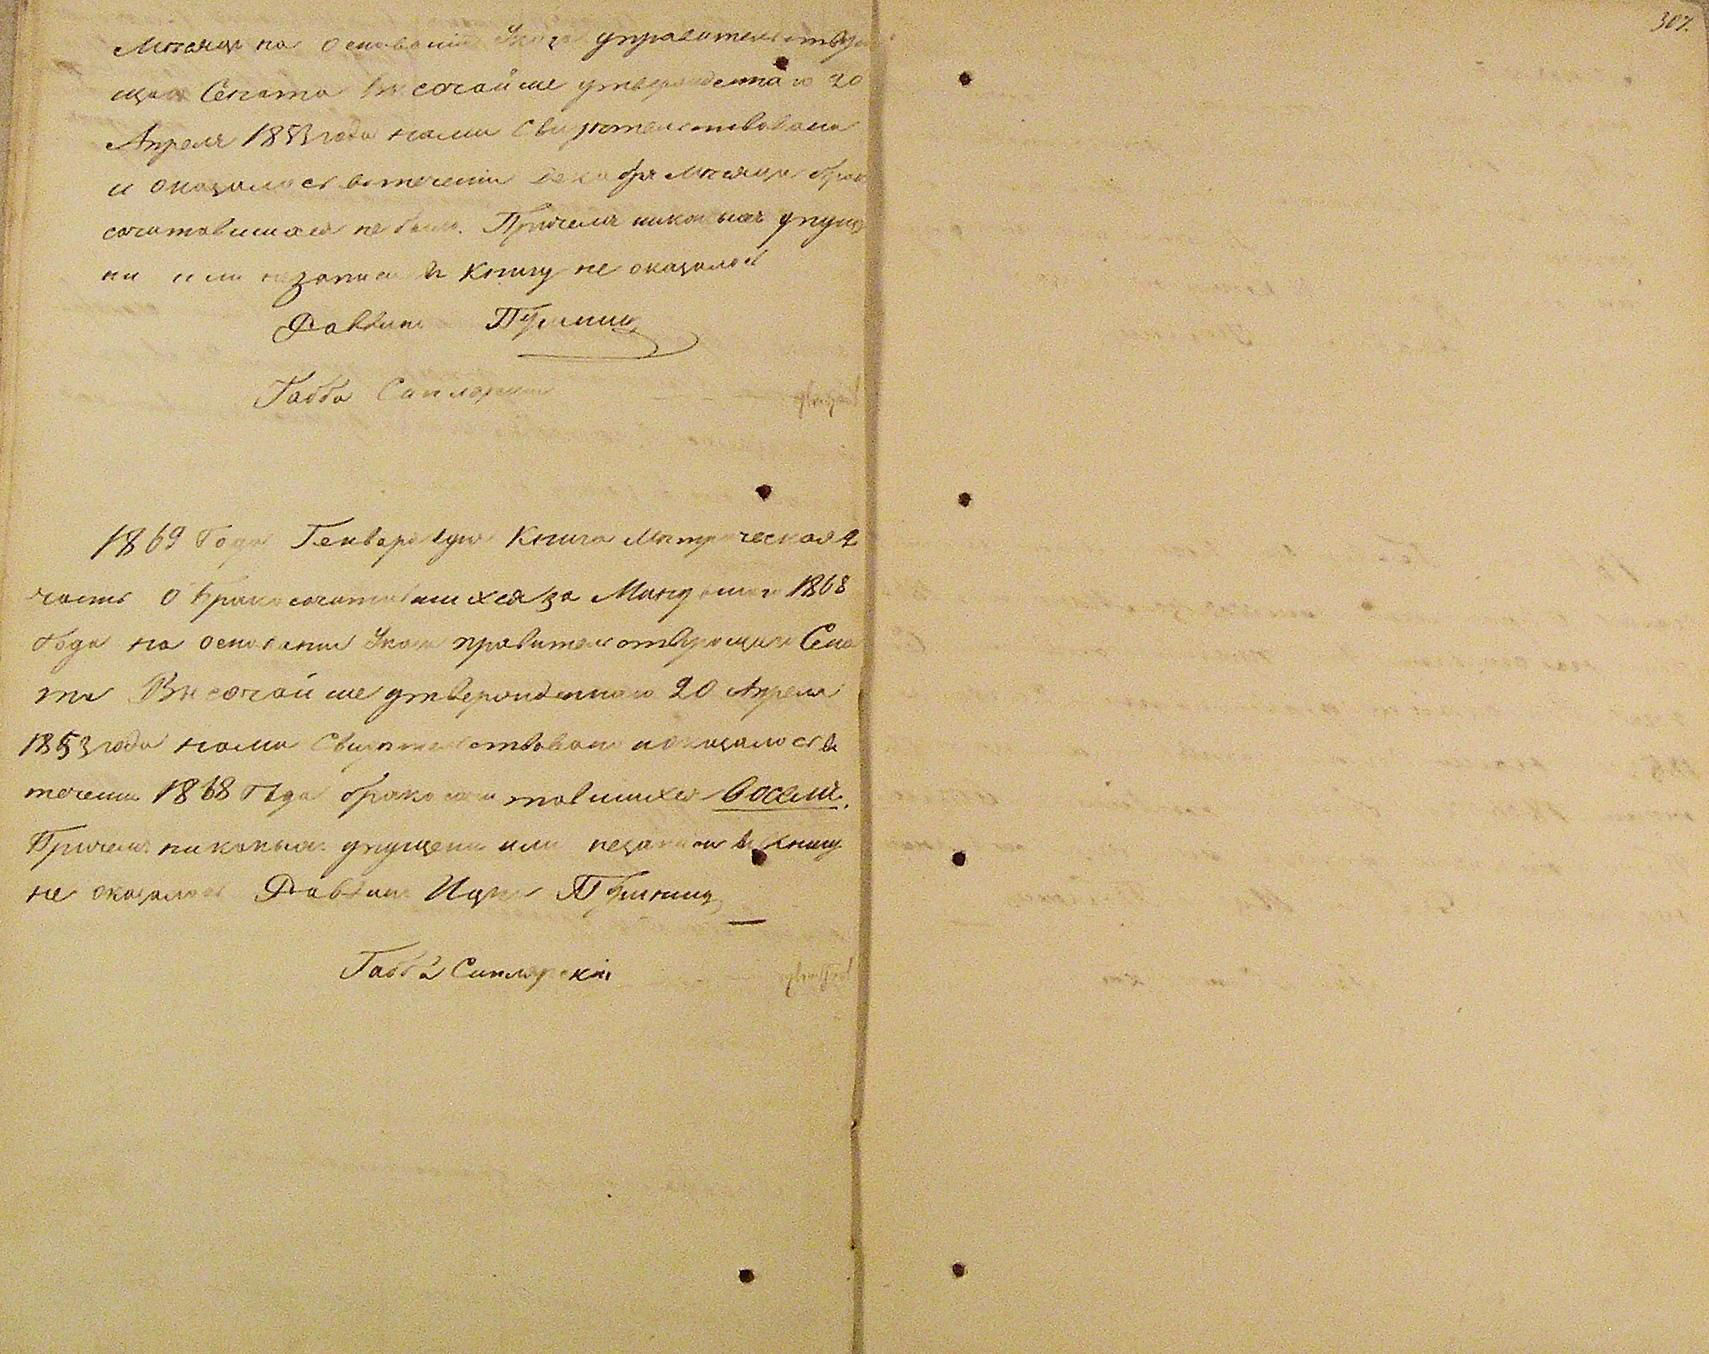 307.
Месяца на основании Указа управительствую
щаго Сената Высочайше утвержденнаго 20
Апреля 1853 года нами Свидетельствована
и оказалось втечении декабря месяца брако
сочитавшихся не было. Причемъ никакихъ упуще
ни или незаписи въ книгу не оказалось
Раввинъ
Габба
1869 Года Генваря дня Книга Метрическая 2
часть О Бракосочитавшихся за Минувшаго 1868
Года на основании Указа правительствующаго Сена
та Высочайше утвержденнаго 20 Апреля
1853 года нами Свидетельствована и оказалось въ
течении 1868 Года бракосочитавшихся восемь.
Причемъ никакихъ упущени или незаписи въ книгу
не оказалось Раввинъ
Габба